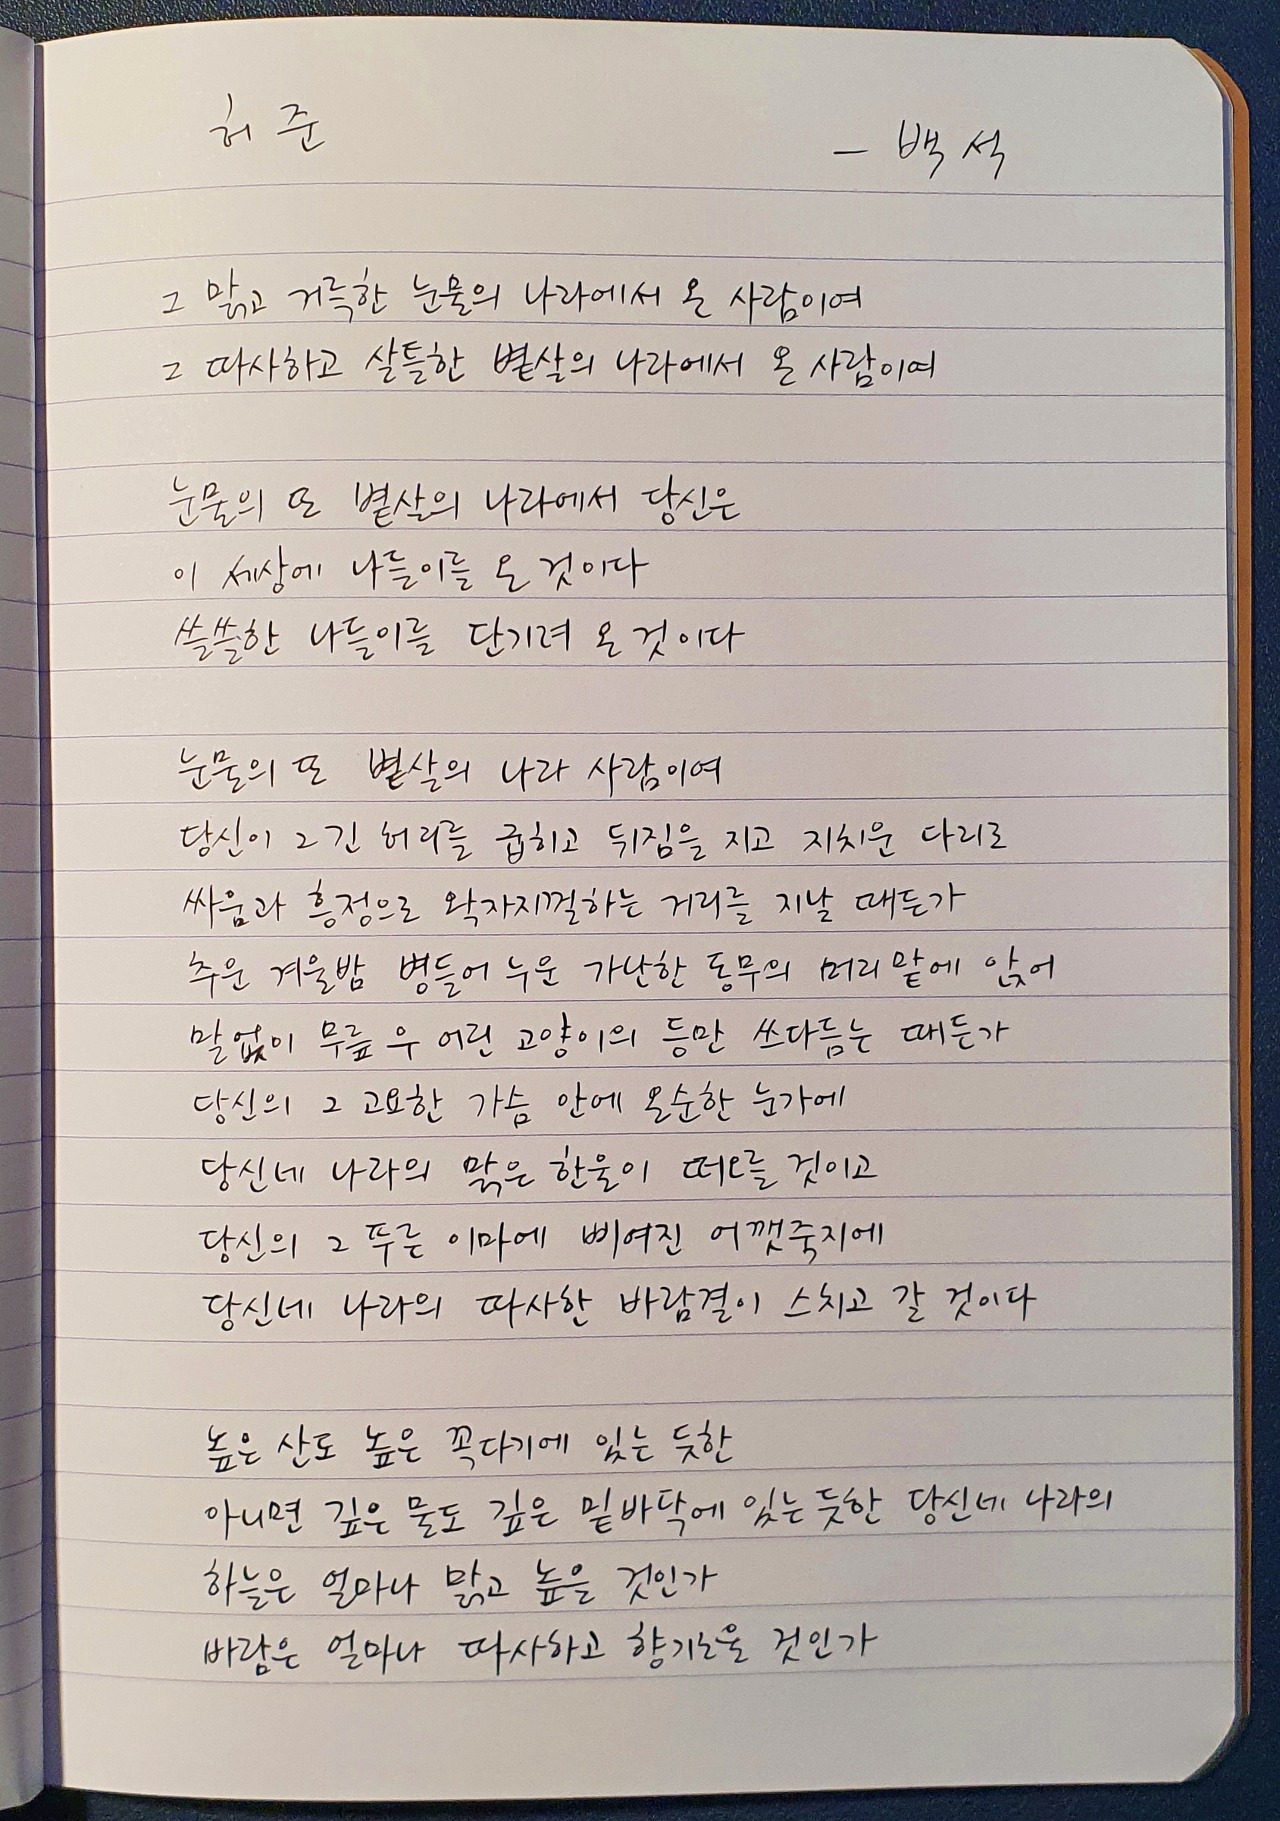 허준 - 백석
그 맑고 거륵한 눈물의 나라에서 온 사람이여
그 따사하고 살틀한 볕살의 나라에서 온 사람이여
눈물의 또 볕살의 나라에서 당신은
이 세상에 나들이를 온 것이다
쓸쓸한 나들이를 단기려 온 것이다
눈물의 또 볕살의 나라 사람이여
당신이 그 긴 허리를 굽히고 뒤짐을 지고 지치운 다리로
싸움과 흥정으로 왁자지껄하는 거리를 지날 때든가
추운 겨울밤 병들어 누운 가난한 동무의 머리맡에 앉어
말없이 무릎 우 어린 고양이의 등만 쓰다듬는 때든가
당신의 그 고요한 가슴 안에 온순한 눈가에
당신네 나라의 맑은 한울이 떠오를 것이고
당신의 그 푸른 이마에 삐여진 어깻죽지에
당신네 나라의 따사한 바람결이 스치고 갈 것이다
높은 산도 높은 꼭다기에 있는 듯한
아니면 깊은 물도 깊은 밑바닥에 있는 듯한 당신네 나라의
하늘은 얼마나 맑고 높을 것인가
바람은 얼마나 따사하고 향기로울 것인가